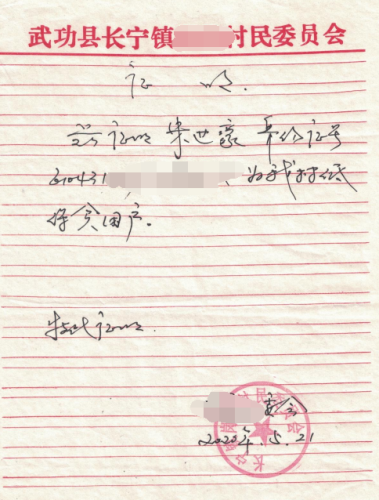 武功县长宁镇 村民委员会
证 明.
兹证明 柴世豪 身份证号
610431 、为我村低
保贫困户.
特此证明.
委会
2020年.5.21